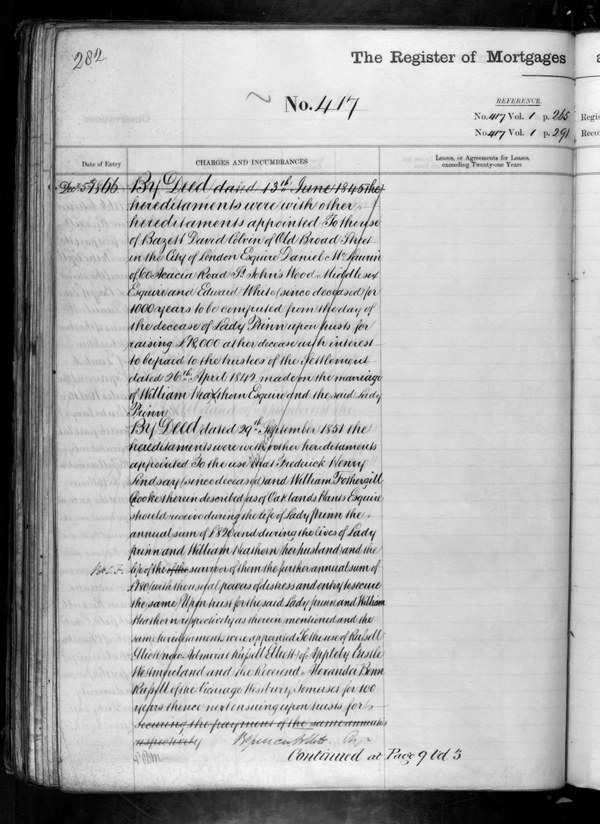 282
The Register of Mortgages a
No. 417
REFERENCE.
No. 417 Vol. 1 p. 265 Regis
No. 417 Vol. 1 p. 291 Reco
Date of Entry
CHARGES AND INCUMBRANCES
Leases, or Agreements for Leases,
exceeding Twenty-one Years
Dec 5th 1866 By Deed dated 13th June 1845 the
hereditaments were with other
hereditaments appointed To the use
of Bazett David Colvin of Old Broad Street
in the City of London Esquire Daniel McLaurin
of 60 Acacia Road St John's Wood Middlesex
Esquire and Edward White (since deceased) for
1000 years to be computed from the day of
the decease of Lady Prinn upon trusts for
raising £78,000 at her decease with interest
to be paid to the trustees of the Settlement
dated 26th April 1842 made on the marriage
of William Heathorn Esquire and the said Lady
Prinn
By Deed dated 29th September 1851 the
hereditaments were with other hereditaments
appointed To the use that Frederick Henry
Lindsay (since deceased) and William Fothergill
Cooke therein described as of Oaklands Hants Esquire
should receive during the life of Lady Prinn the
annual sum of £820 and during the lives of Lady
Prinn and William Heathorn her husband and the
life of the of the survivor of them the further annual sum of
£780 with the usual powers of distress and entry to secure
the same Upon trust for the said Lady Prinn and William
Heathorn respectively as therein mentioned and the
same hereditaments were appointed To the use of Russell
Elliott now Admiral Russell Elliott of Appleby Castle
Westmoreland and the Reverend Alexander Benn
Russell of the Vicarage Westbury Somerset for 100
years thence next ensuing upon trusts for
securing the payment of the same annuities
respectively
Continued at Page 9 Vol 3